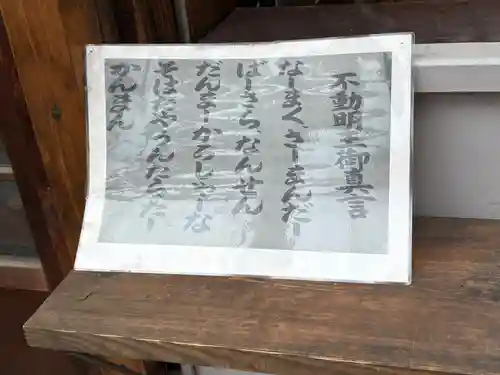 不動明王御真言
なーまく、さーまんだー
ばーさら、なんせん
だんまーかろしゃーな
そはたやうんたらたー
かんまん